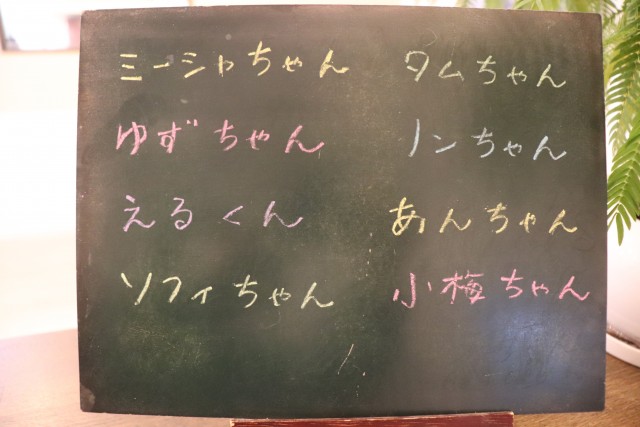 ミーシャちゃん
ゆずちゃん
えるくん
ソフィちゃん
タムちゃん
ノンちゃん
あんちゃん
小梅ちゃん